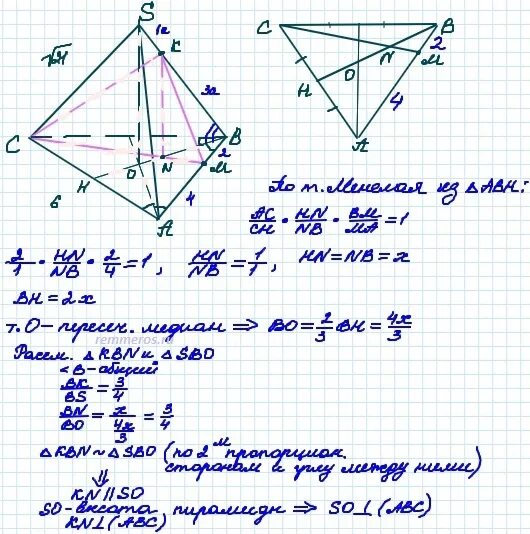 S
1a
K
√21
3a
C
B
2
N
M
O
H
4
6
A
C
B
2
N
M
O
H
4
A
По т. Менелая из △ABH:
AC/CH · HN/NB · BM/MA = 1
2/1 · HN/NB · 2/4 = 1, HN/NB = 1/1, HN = NB = x
BH = 2x
т. O - пересеч. медиан ⇒ BO = 2/3 BH = 4x/3
remmeros.ru
Рассм. △KBN и △SBO
<B - общий
BK/BS = 3/4
BN/BO = x/(4x/3) = 3/4
△KBN ~ △SBO (по 2м пропорцион.
сторонам и углу между ними)
⇓
KN || SO
SO - высота пирамиды ⇒ SO⊥(ABC)
KN⊥(ABC)